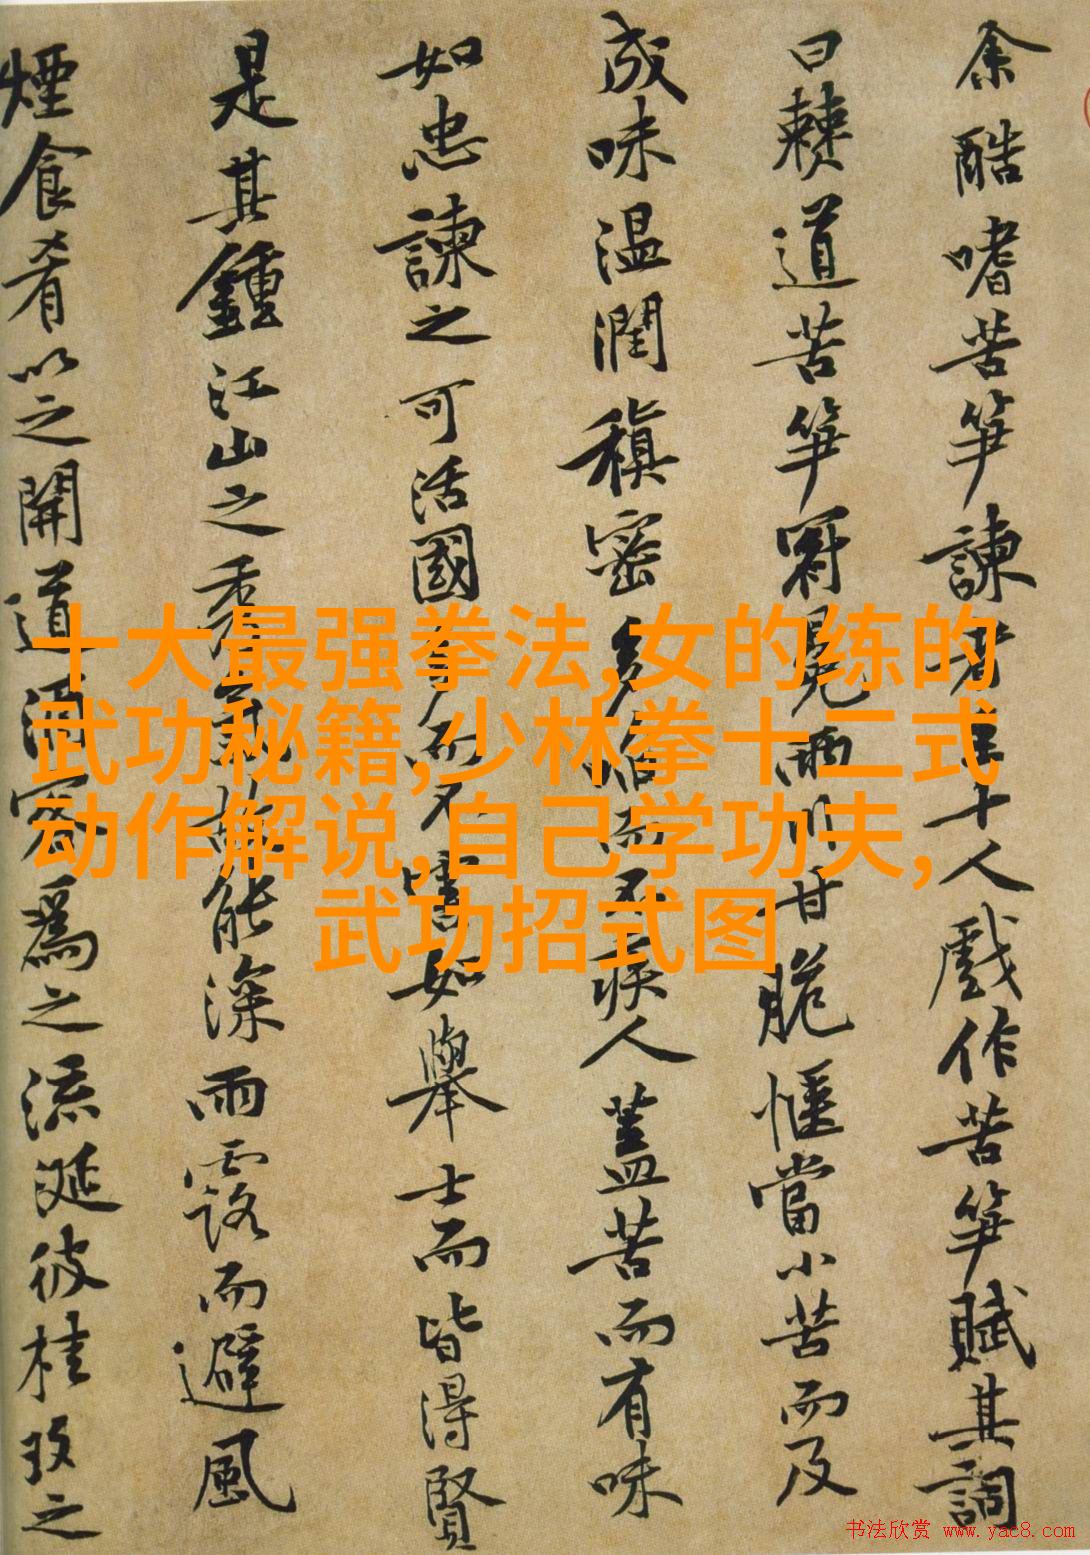 余酷嗜苦笋諫者至十人戲作苦笋賦其詞
曰僰道苦笋冠冕兩川甘脆愜當小苦而及
成味温潤稹密多啗而不疾人蓋苦而有味
如忠諫之可活國多而不害如舉士而皆得賢
是其鍾江山之秀故能深雨露而避風
煙食肴以之開道酒客爲之流涎彼桂玫之
十大最强拳法,女的练的
武功秘籍,少林拳十二式
动作解说,自己学功夫,
武功招式图
书法欣赏 www.yac8.com